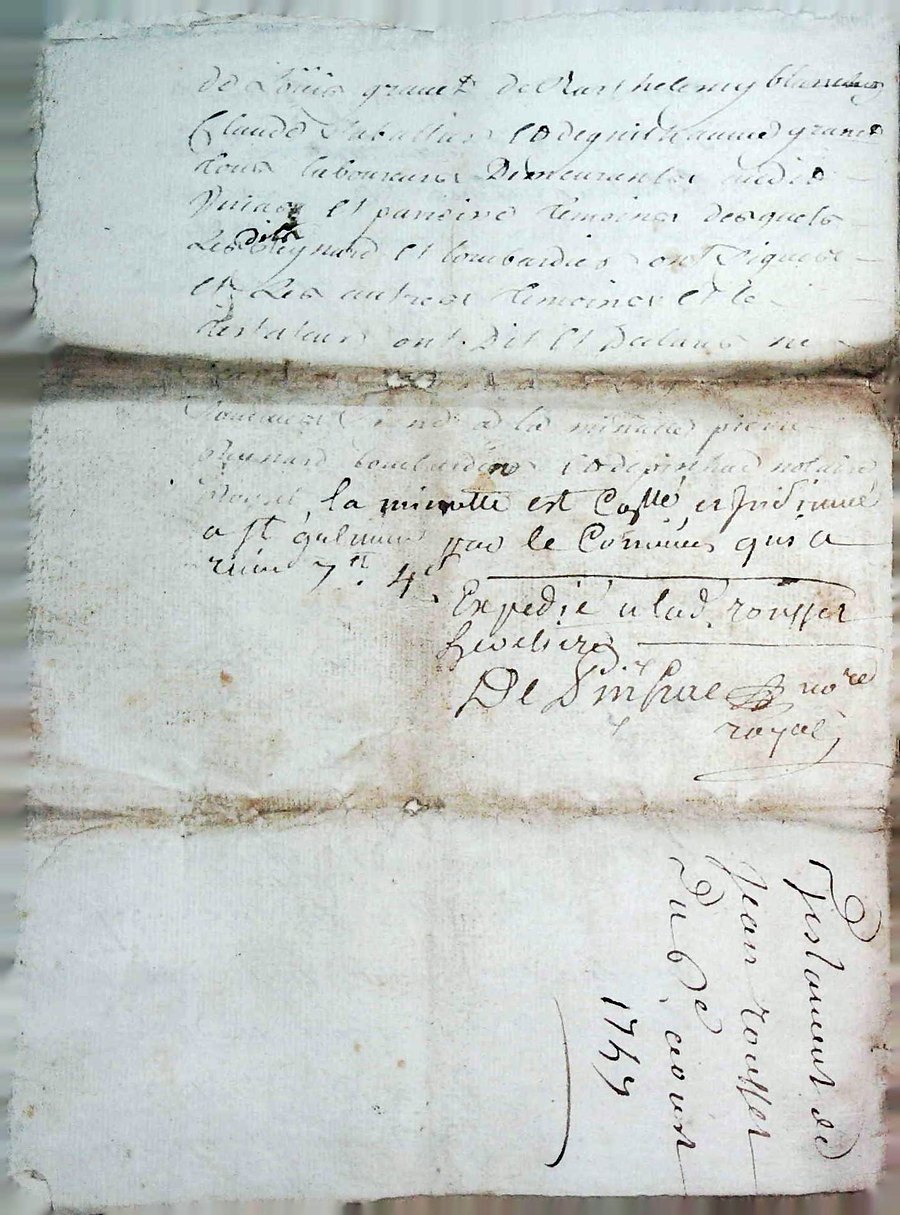 de Loüis granet de Barthelemy blanchet
Claude et de guilhaume granet
tous laboureurs Demeurants audit
et paroisse témoins desquels
Lesdits Reynard et lombardin ont Signé
et Les autres témoins et le
testateur ont Dit et Declaré ne
a la minutte pierre
Reynard lombardin et depinhac notaire
Royal, la minutte est Collé et Insinué
a St galmier par le Commis qui a
reçu 7tt. 4s.
Expedié a lad. rousset
heretiere
De Pinhac nore
royal,
Testament de
Jean rousset
Du 6e aoust
1747